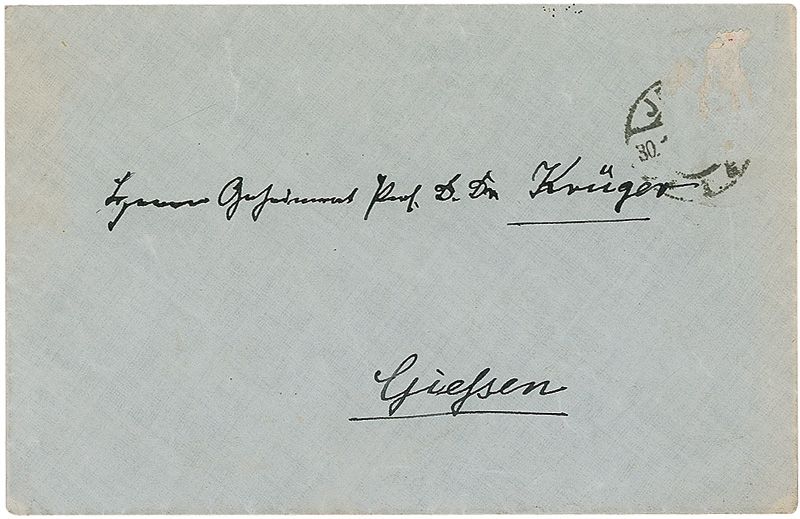 J
30.
Herrn Geheimrat Prof. D. Dr. Krüger
Giessen